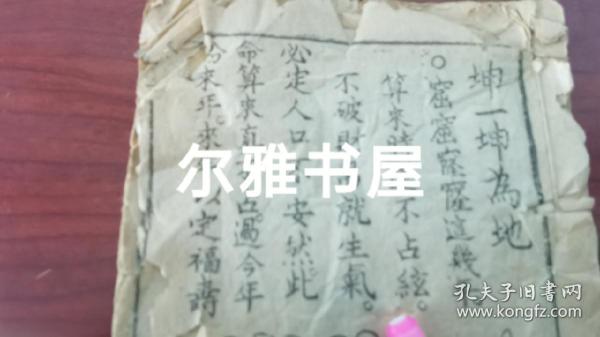 坤一坤為地
○窑窑窿窿這幾年
算來 不占絃。
不破財 就生氣。
必定人口 安然此
命算來真 占過今年
來年。來 定福壽
尔雅书屋
孔夫子旧书网
www.kongfz.com